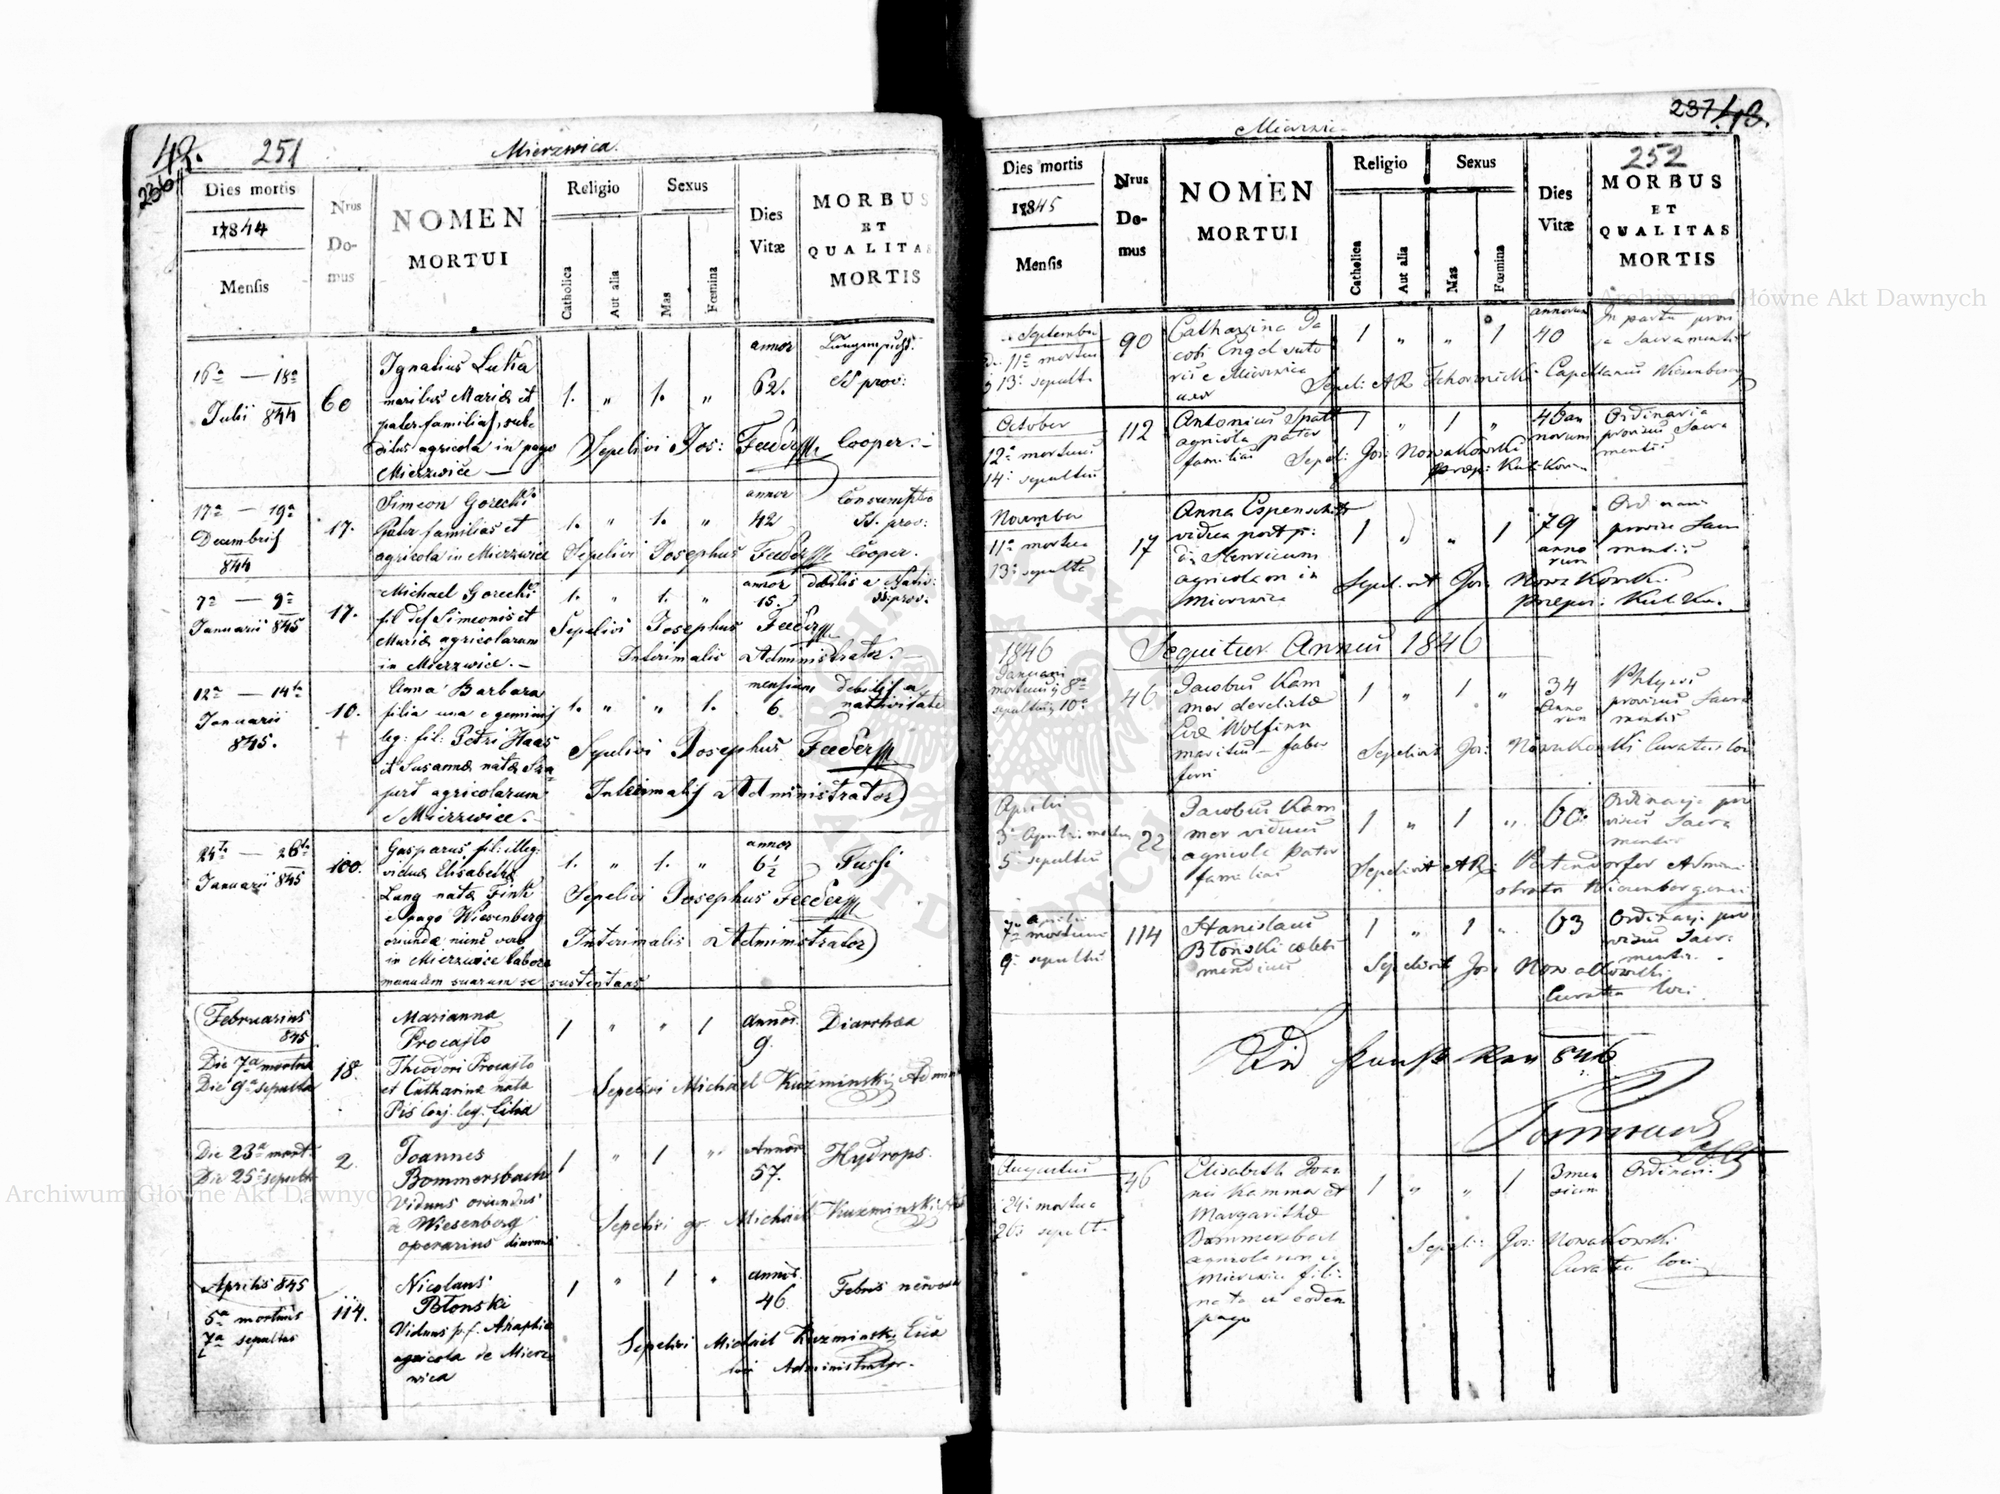 42.
251
Mierzwica.
236
Dies mortis
1844
Mensis
Nrus
Do-
mus
NOMEN
MORTUI
Religio
Catholica
Aut alia
Sexus
Mas
Fœmina
Dies
Vitæ
MORBUS
ET
QUALITAS
MORTIS
16a — 18a
Julii 844
60
Ignatius
maritus Mariæ et
pater familias,
agricola in pago
Mierzwice —
1. „ 1. „
annor
62.
SS prov:
Sepelivi Jos: Feeder Cooper. —
17a — 19a
Decembris
844
17.
Simeon Gorecki
Pater familias et
agricola in Mierzwice
1. „ 1. „
annor
42
Consumptio
SS. prov:
Sepelivi Josephus Feeder Cooper.
7a — 9a
Januarii 845
17.
Michael Gorecki
fil def Simeonis et
Mariæ agricolarum
in Mierzwice. —
1. „ 1. „
annor
15.
debilis a Nativ:
SS prov.
Sepelivi Josephus Feeder
Interimalis Administrator. —
12a — 14ta
Januarii
845.
10.
Anna Barbara
filia una e geminis
leg: fil: Petri Haas
et Susannæ natæ
agricolarum
Mierzwice. —
1. „ „ 1.
mensium
6
debilis a
nativitate
Sepelivi Josephus Feeder
Interimalis Administrator
24ta — 26ta
Januarii 845
100.
Gasparus fil: illeg:
viduæ Elisabethæ
Lang natæ Fink
e pago Wiesenberg
oriundæ nunc vero
in Mierzwice labore
manuum suarum se sustentans
1. „ 1. „
annor
6½
Tussi
Sepelivi Josephus Feeder
Interimalis Administrator
Februarius
845
Die 7a mortua
Die 9a sepulta
18.
Marianna
Procajlo
Theodori Procajlo
et Catharina nata
Pis conj. leg: filia
1 „ „ 1
annor.
9.
Diarrhæa
Sepelivi Michael Kuzminski
Die 23a mort:
Die 25a sepult:
2.
Joannes
Bommersbach
Viduus oriundus
a Wiesenberg
operarius
1 „ 1 „
Annor
57.
Hydrops.
Sepelivi gr. Michael Kuzminski
Aprilis 845
5a mortuus
7a sepultus
114.
Nicolaus
Błonski
Viduus p. f. Ahaphia
agricola de Mierz-
wica
1 „ 1 „
annor.
46
Febris nervosa
Sepelivi Michael Kuzminski
loci Administrator.
237
48.
252
Dies mortis
1845
Mensis
Nrus
Do-
mus
NOMEN
MORTUI
Religio
Catholica
Aut alia
Sexus
Mas
Fœmina
Dies
Vitæ
MORBUS
ET
QUALITAS
MORTIS
September
11a mortua
13: sepult.
90
Catharina Ja
cobi Engel
Mierzwice
uxor
1 „ „ 1
annorum
40
In partu provi
sa Sacramentis
Sepel: AR Capellanus
October
12a mortuus
14: sepultus
112
Antonius Spatt
agricola pater
familias
1 „ 1 „
46 an
norum
Ordinaria
provisus Sacra
mentis
Sepel: Jos: Nowakowski
November
11a mortua
13: sepulta
17
Anna Espenschitt
vidua post
Henricum
agricolam in
Mierzwica
1 „ „ 1
79
anno
rum
Ordinari
provisa Sacra
mentis
Sepelivit Jos: Nowakowski
1846
Sequitur Annus 1846
Januari
mortuus 8a
sepultus 10a
46
Jacobus Kam
mer derelictæ
Evæ Wolfinn
maritus — faber
ferri
1 „ 1 „
34
Anno
rum
Phtysis
provisus Sacra
mentis
Sepelivit Jos: Nowakowski Curatus loci
Aprilis
3: Aprilis mortuus
5 sepultus
22
Jacobus Kam
mer viduus
agricola pater
familias
1 „ 1 „
60
Ordinaria pro
visus Sacra
mentis
Sepelivit AR:
Aprilis
7a mortuus
9: sepultus
114
Stanislaus
Błonski cælebs
mendicus
1 „ 1 „
63
Ordinari pro
visus Sacra
mentis.
Sepelivit Jos: Nowakowski
Curatus loci
846
Augustus
24: mortua
26: sepult:
46
Elisabeth Joan
nis Kammer et
Margarithæ
Bommersbach
agricolarum e
Mierzwice filia
nata in eodem
pago
1 „ „ 1
3 men
sium
Ordinari:
Sepeli: Jos: Nowakowski
Curatus loci
Archiwum Główne Akt Dawnych
Archiwum Główne Akt Dawnych